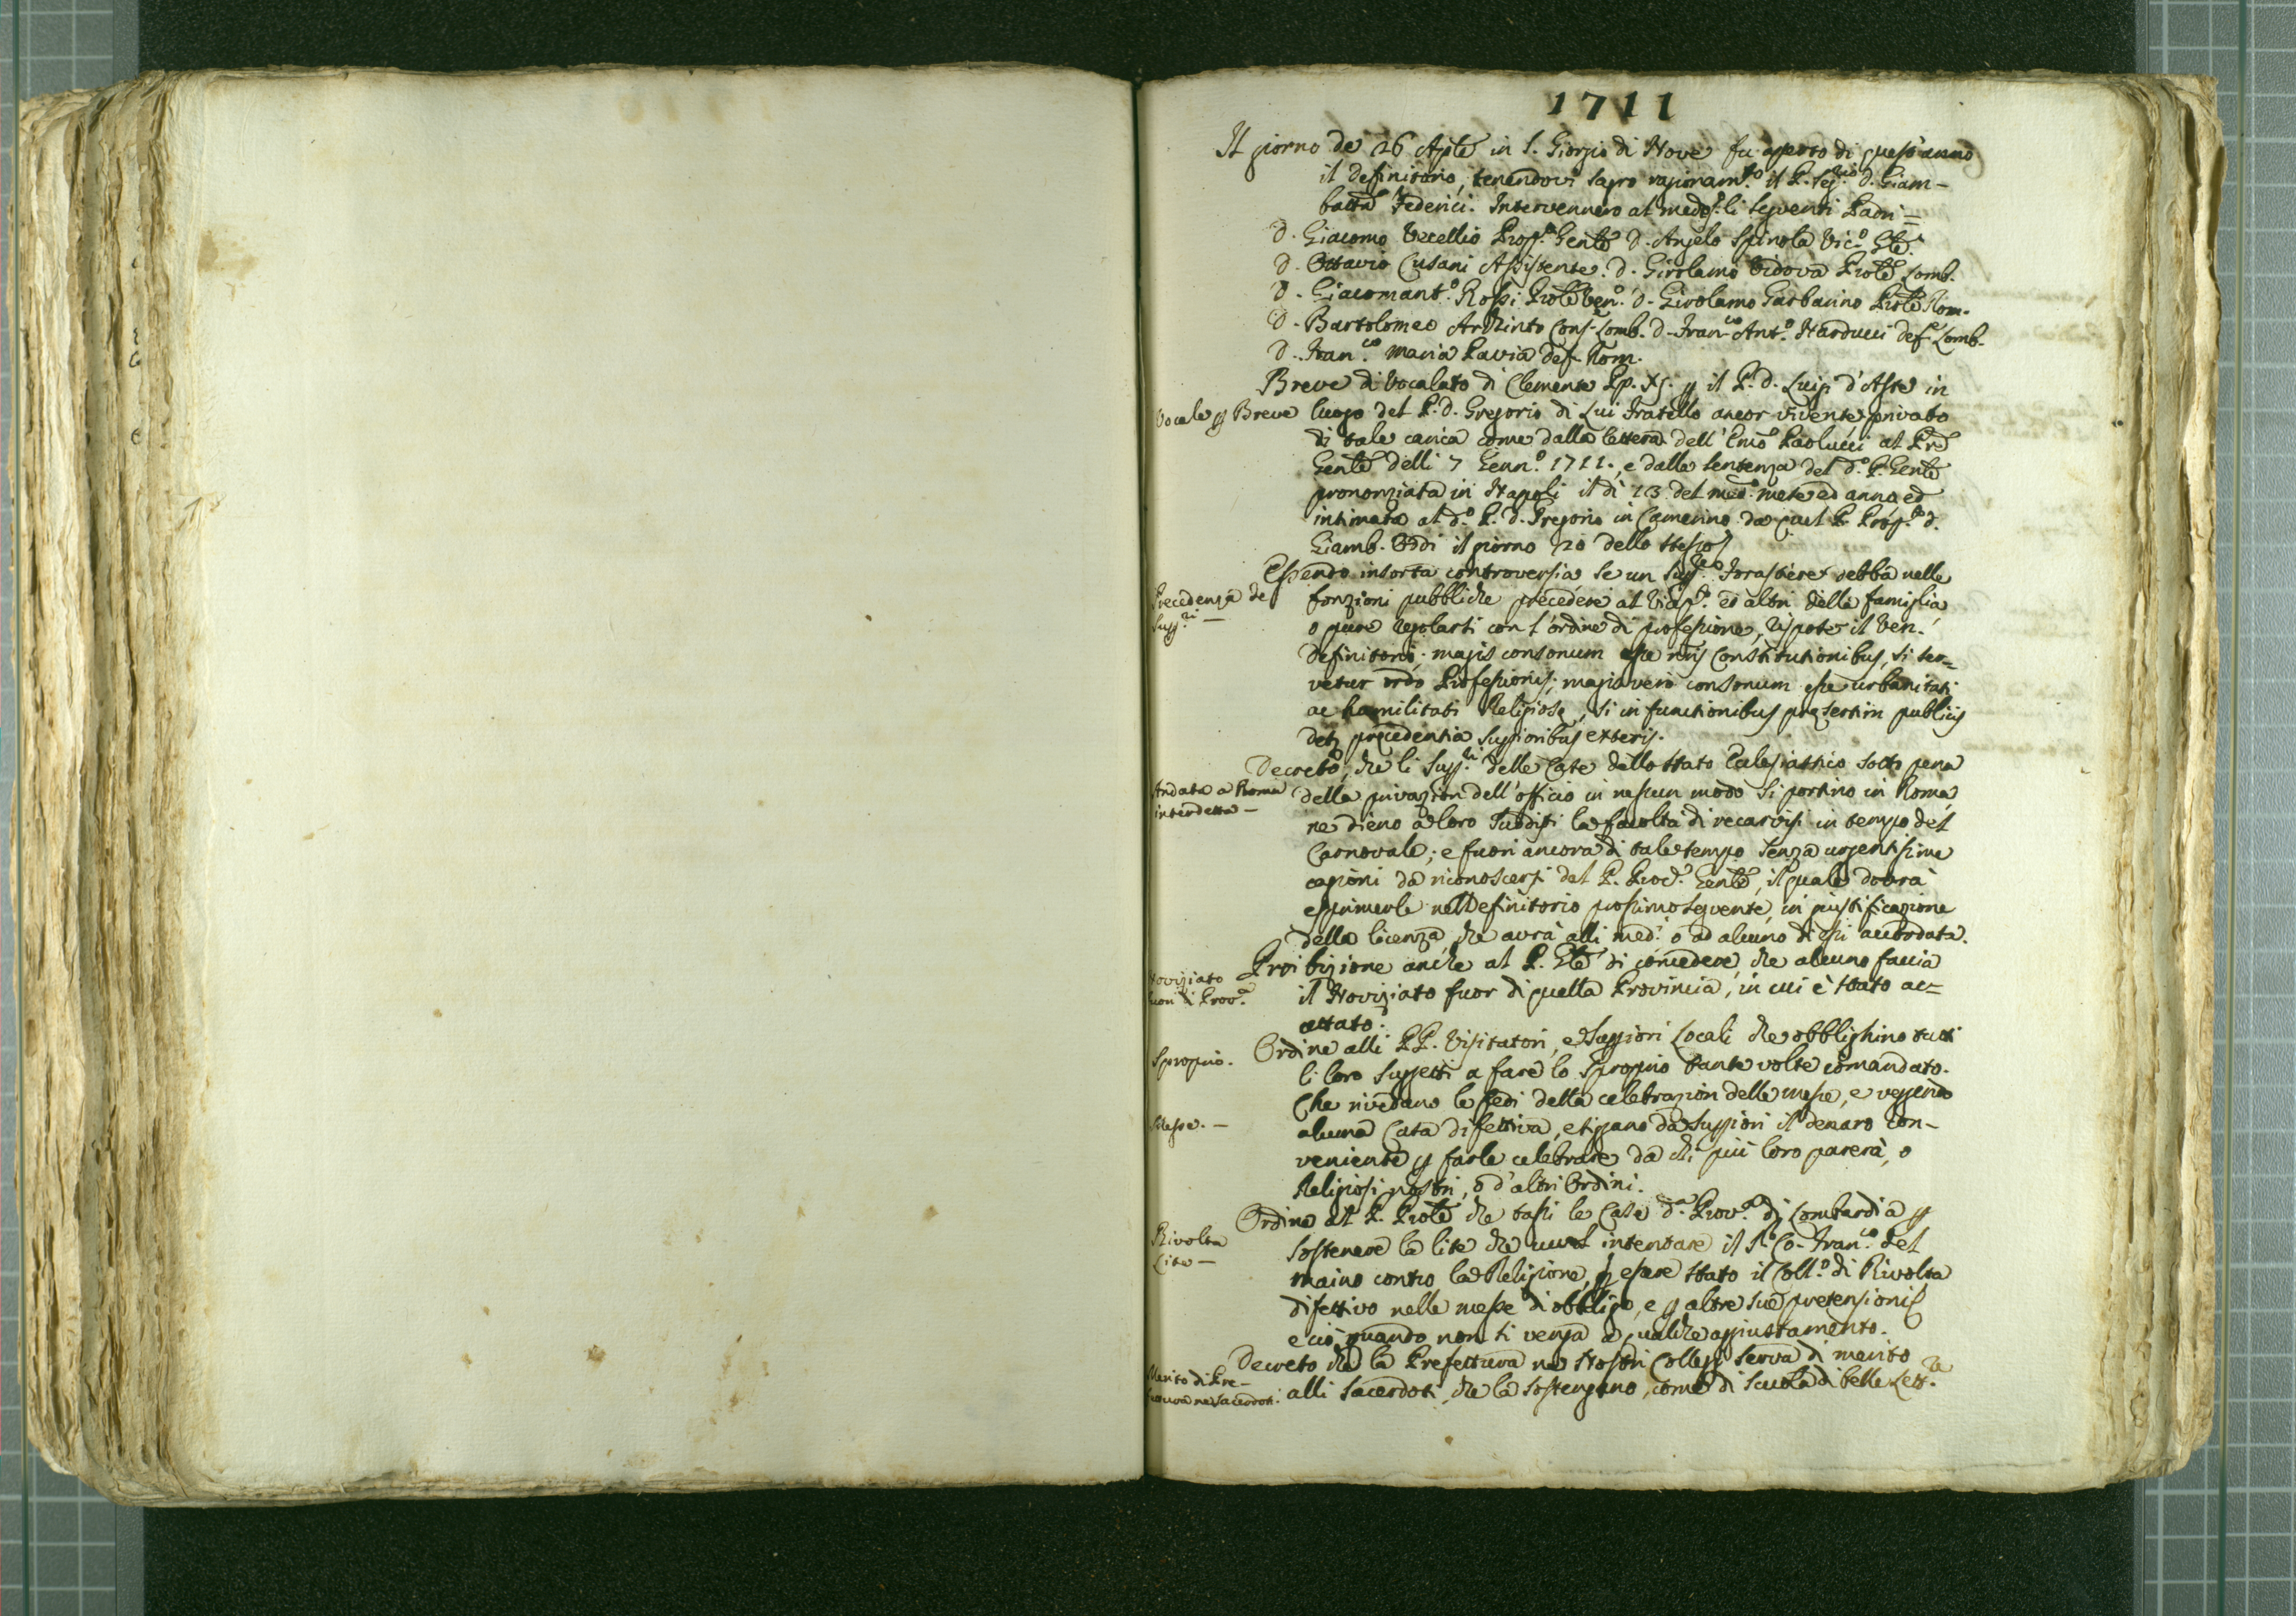 1711
Il giorno de 26 Aple in S. Giorgio di Nove fu aperto di quest'anno
il definitorio, tenendovi sagro ragionam.to il P. Seg.rio d. Giam-
batta Federici. Intervennero al medes.o li seguenti Padri=
d. Giacomo Vecellio Prep.to Genle d. Angelo Spinola Vic.o Gle.
d. Ottavio Cusani Assistente. d. Girolamo Vidova Prole Lomb.
d. Giacomant.o Rossi Prole Ven.o d. Girolamo Garbarino Prole Rom.
d. Bartolomeo Archinto Cons.e Lomb. d. Fran.co Ant.o Narducci def.e Lomb.
d. Fran.co Maria Pavia def. Rom.
Breve di Vocalato di Clemente Pp. XI. p il P. d. Luigi d'Aste in
Vocale p Breve
luogo del P. d. Gregorio di Lui Fratello ancor vivente privato
di tale carica come dalla lettera dell' Emo Paolucci al Pre
Genle delli 7 Genn.o 1711., e dalla sentenza del d.o P. Genle
prononziata in Napoli il dì 13 del med.o mese ed anno ed
intimata al d.o P. d. Gregorio in Camerino da quel P. Prep.to d.
Giamb. Oddi il giorno 20 dello stesso
Essendo insorta controversia se un Supp.re Forastiere debba nelle
Precedenza de
Supp.ri —
fonzioni pubbliche precedere al Vicep.o ed altri della famiglia,
o pure regolarsi con l'ordine di professione, rispose il Ven.
Definitorio: magis consonum esse nris Constitutionibus, si ser=
vetur ordo Professionis; magis vero consonum esse urbanitati
ac humilitati Religiosę, si in functionibus pręsertim publicis
detur precedentia Supprioribus exteris.
Decreto, che li Supp.ri delle Case dello Stato Eclesiastico sotto pena
Andata a Roma
interdetta —
della privazion dell'officio in nessun modo si portino in Roma,
ne dieno a loro Sudditi la facoltà di recarvisi in tempo del
Carnovale; e fuori ancora di tale tempo senza urgentissime
cagioni da riconoscersi dal P. Proc.e Genle, il quale dovrà
esprimerle nel Definitorio prossimo seguente, in giustificazione
della licenza, che avrà alli med.i o ad alcuno di essi accordata.
Proibizione anche al P. Gle di concedere, che alcuno faccia
Noviziato
fuori di Prov.a
il Noviziato fuor di quella Provincia, in cui è stato ac=
cettato.
Ordine alli PP. Visitatori, e Suppriori Locali che obblighino tutti
Sproprio.
li loro Suggetti a fare lo Sproprio tante volte comandato.
Che rivedano le fedi della celebrazion delle messe, e veggendo
Messe. —
alcuna Casa difettiva, esiggano da Suppriori il denaro con-
veniente p farle celebrare da chi più loro parerà, o
Religiosi nostri, o d'altri Ordini.
Ordine al P. Prole che tassi le Case d.a Prov.a di Lombardia p
Rivolta
Lite —
sostenere la lite che vuol intentare il S.r Co. Fran.co del
Maino contro la Religione, p essere stato il Coll.o di Rivolta
difettivo nelle messe d'obbligo, e p altre sue pretensioni
e ciò, quando non si venga a qualche aggiustamento.
Decreto che la Prefettura ne Nostri Collegi serva di merito
Merito di Pre-
fettura ne Sacerdoti.
alli Sacerdoti, che la sostengono, come di scuola di belle Lett.re